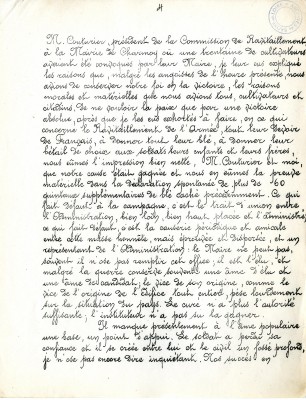 4
M. Couturier, président de la Commission de Ravitaillement
à la Mairie de Charmoy où une trentaine de cultivateurs
avaient été convoqués par leur Maire, je leur eus expliqué
les raisons que, malgré les angoisses de l'heure présente, nous
avions de conserver notre foi en la victoire, les raisons
morales et matérielles que nous avions tous, cultivateurs et
citadins, de ne vouloir la paix que par une victoire
absolue, après que je les eus exhortés à faire, en ce qui
concerne le Ravitaillement de l'Armée, tout leur devoir
de Français, à donner tout leur blé, à donner leur
bétail de choix aux soldats leurs enfants et leurs frères,
nous eûmes l'impression bien nette, M. Couturier et moi,
que notre cause était gagnée et nous en eûmes la preuve
matérielle dans la déclaration spontanée de plus de 60
quintaux supplémentaires de blé caché précédemment. Ce qui
fait défaut à la campagne c'est le trait d'union entre
l'Administration, bien loin, bien haut placée et l'administré,
ce qui fait défaut, c'est la causerie périodique et amicale
entre cette masse bornée, mais égoïste et et un
représentant de l'Administration. Le Maire ne peut pas,
souvent il n'ose pas remplir cet office; il est l'élu, et
malgré la guerre conserve toujours une âme d'élu et
une âme de candidat; le vice de son origine, comme le
vice de l'origine de l'office tout entier, pèse lourdement
sur la situation du pays. Le curé n'a plus l'autorité
suffisante; l'instituteur n'a pas su la gagner.
Il manque présentement à l'âme populaire
une base, un point d'appui. Le soldat a perdu sa
confiance et il se crée entre lui et le civil un fossé profond,
je n'ose pas encore dire inquiétant. Nos succès en